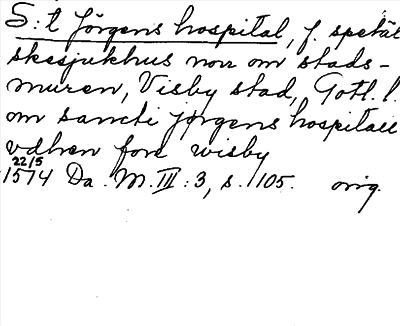 S:t Jörgens hospital, f. spetäl
skesjukhus norr om stads-
muren, Visby stad, Gotl. l.
om sancti jørgens hospitall
vdhen fore wisby
22/5
1574 Da. M. III:3, s. 105. orig.